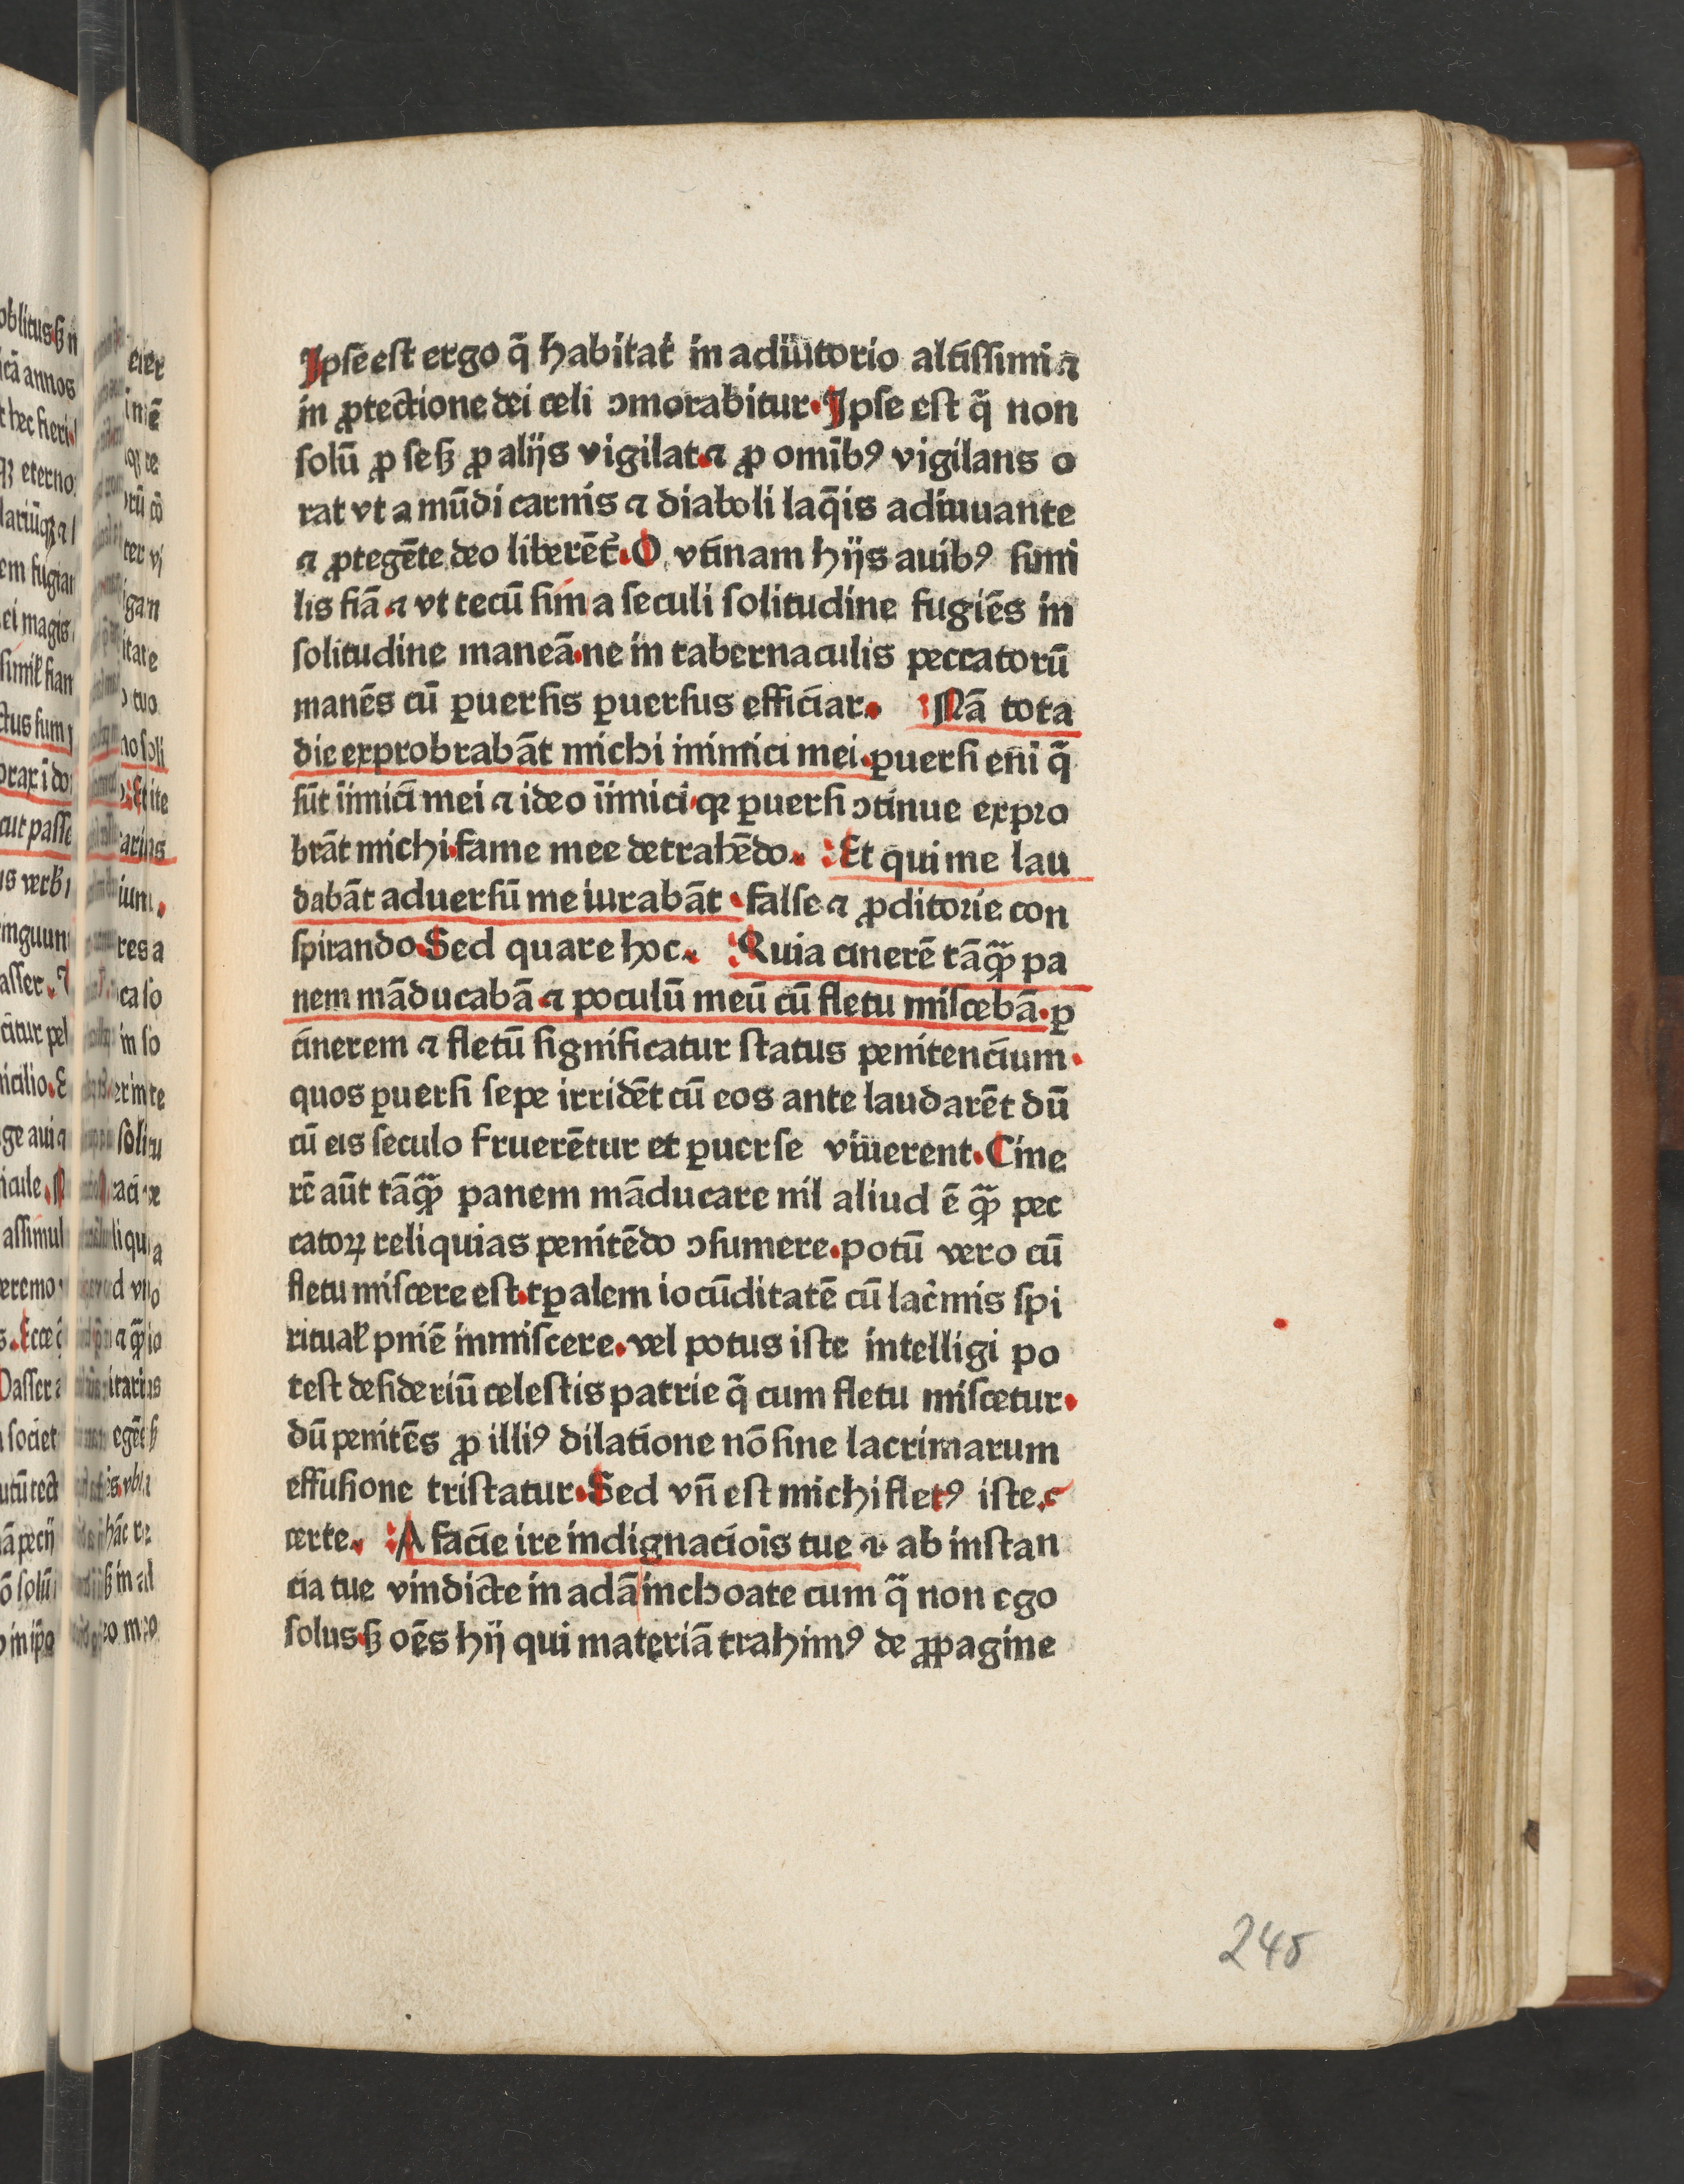 Ipse est ergo q̄ habitat in adiutorio altissimi ⁊
in ꝓtectione dei celi ꝯmorabitur. Ipse est q̄ non
solū ꝓ se sꝫ ꝓ alijs vigilat. ⁊ ꝓ omībꝰ vigilans o
rat vt a mūdi carnis ⁊ diaboli laq̄is adiuuante
⁊ ꝓtegēte deo liberēt̄. O vtinam hijs auibꝰ simi
lis fiā. ⁊ vt tecū sim a seculi solitudine fugiēs in
solitudine maneā. ne in tabernaculis peccatorū
manēs cū ꝑuersis ꝑuersus efficiar. Nā tota
die exprobrabāt michi inimici mei. ꝑuersi eni q̄
sūt iīmici mei ⁊ ideo iīmici. qꝛ ꝑuersi ꝯtinue expro
brāt michi. fame mee detrahēdo. Et qui me lau
dabāt aduersū me iurabāt. false ⁊ ꝓditorie con
spirando. Sed quare hoc. Quia cinerē tāꝙ̄ pa
nem māducabā ⁊ poculū meū cū fletu miscebā. ꝑ
cinerem ⁊ fletū significatur status penitencium.
quos ꝑuersi sepe irridēt cū eos ante laudarēt dū
cū eis seculo fruerētur et ꝑuerse viuerent. Cine
rē aūt tāꝙ̄ panem māducare nil aliud ē ꝙ̄ pec
catoꝝ reliquias penitēdo ꝯsumere. potū vero cū
fletu miscere est. tꝑalem iocūditatē cū lacͥmis spi
ritual̄ pnie inmiscere. vel potus iste intelligi po
test desideriū celestis patrie q̄ cum fletu miscetur.
dū penitēs ꝓ illiꝰ dilatione nō sine lacrimarum
effusione tristatur. Sed vn̄ est michi fletꝰ iste. c
certe. A facie ire indignaciois tue ⁊ ab instan
cia tue vindicte in adā inchoate cum q̄ non ego
solus. sꝫ oēs hij qui materiā trahimꝰ de ꝓpagine
245